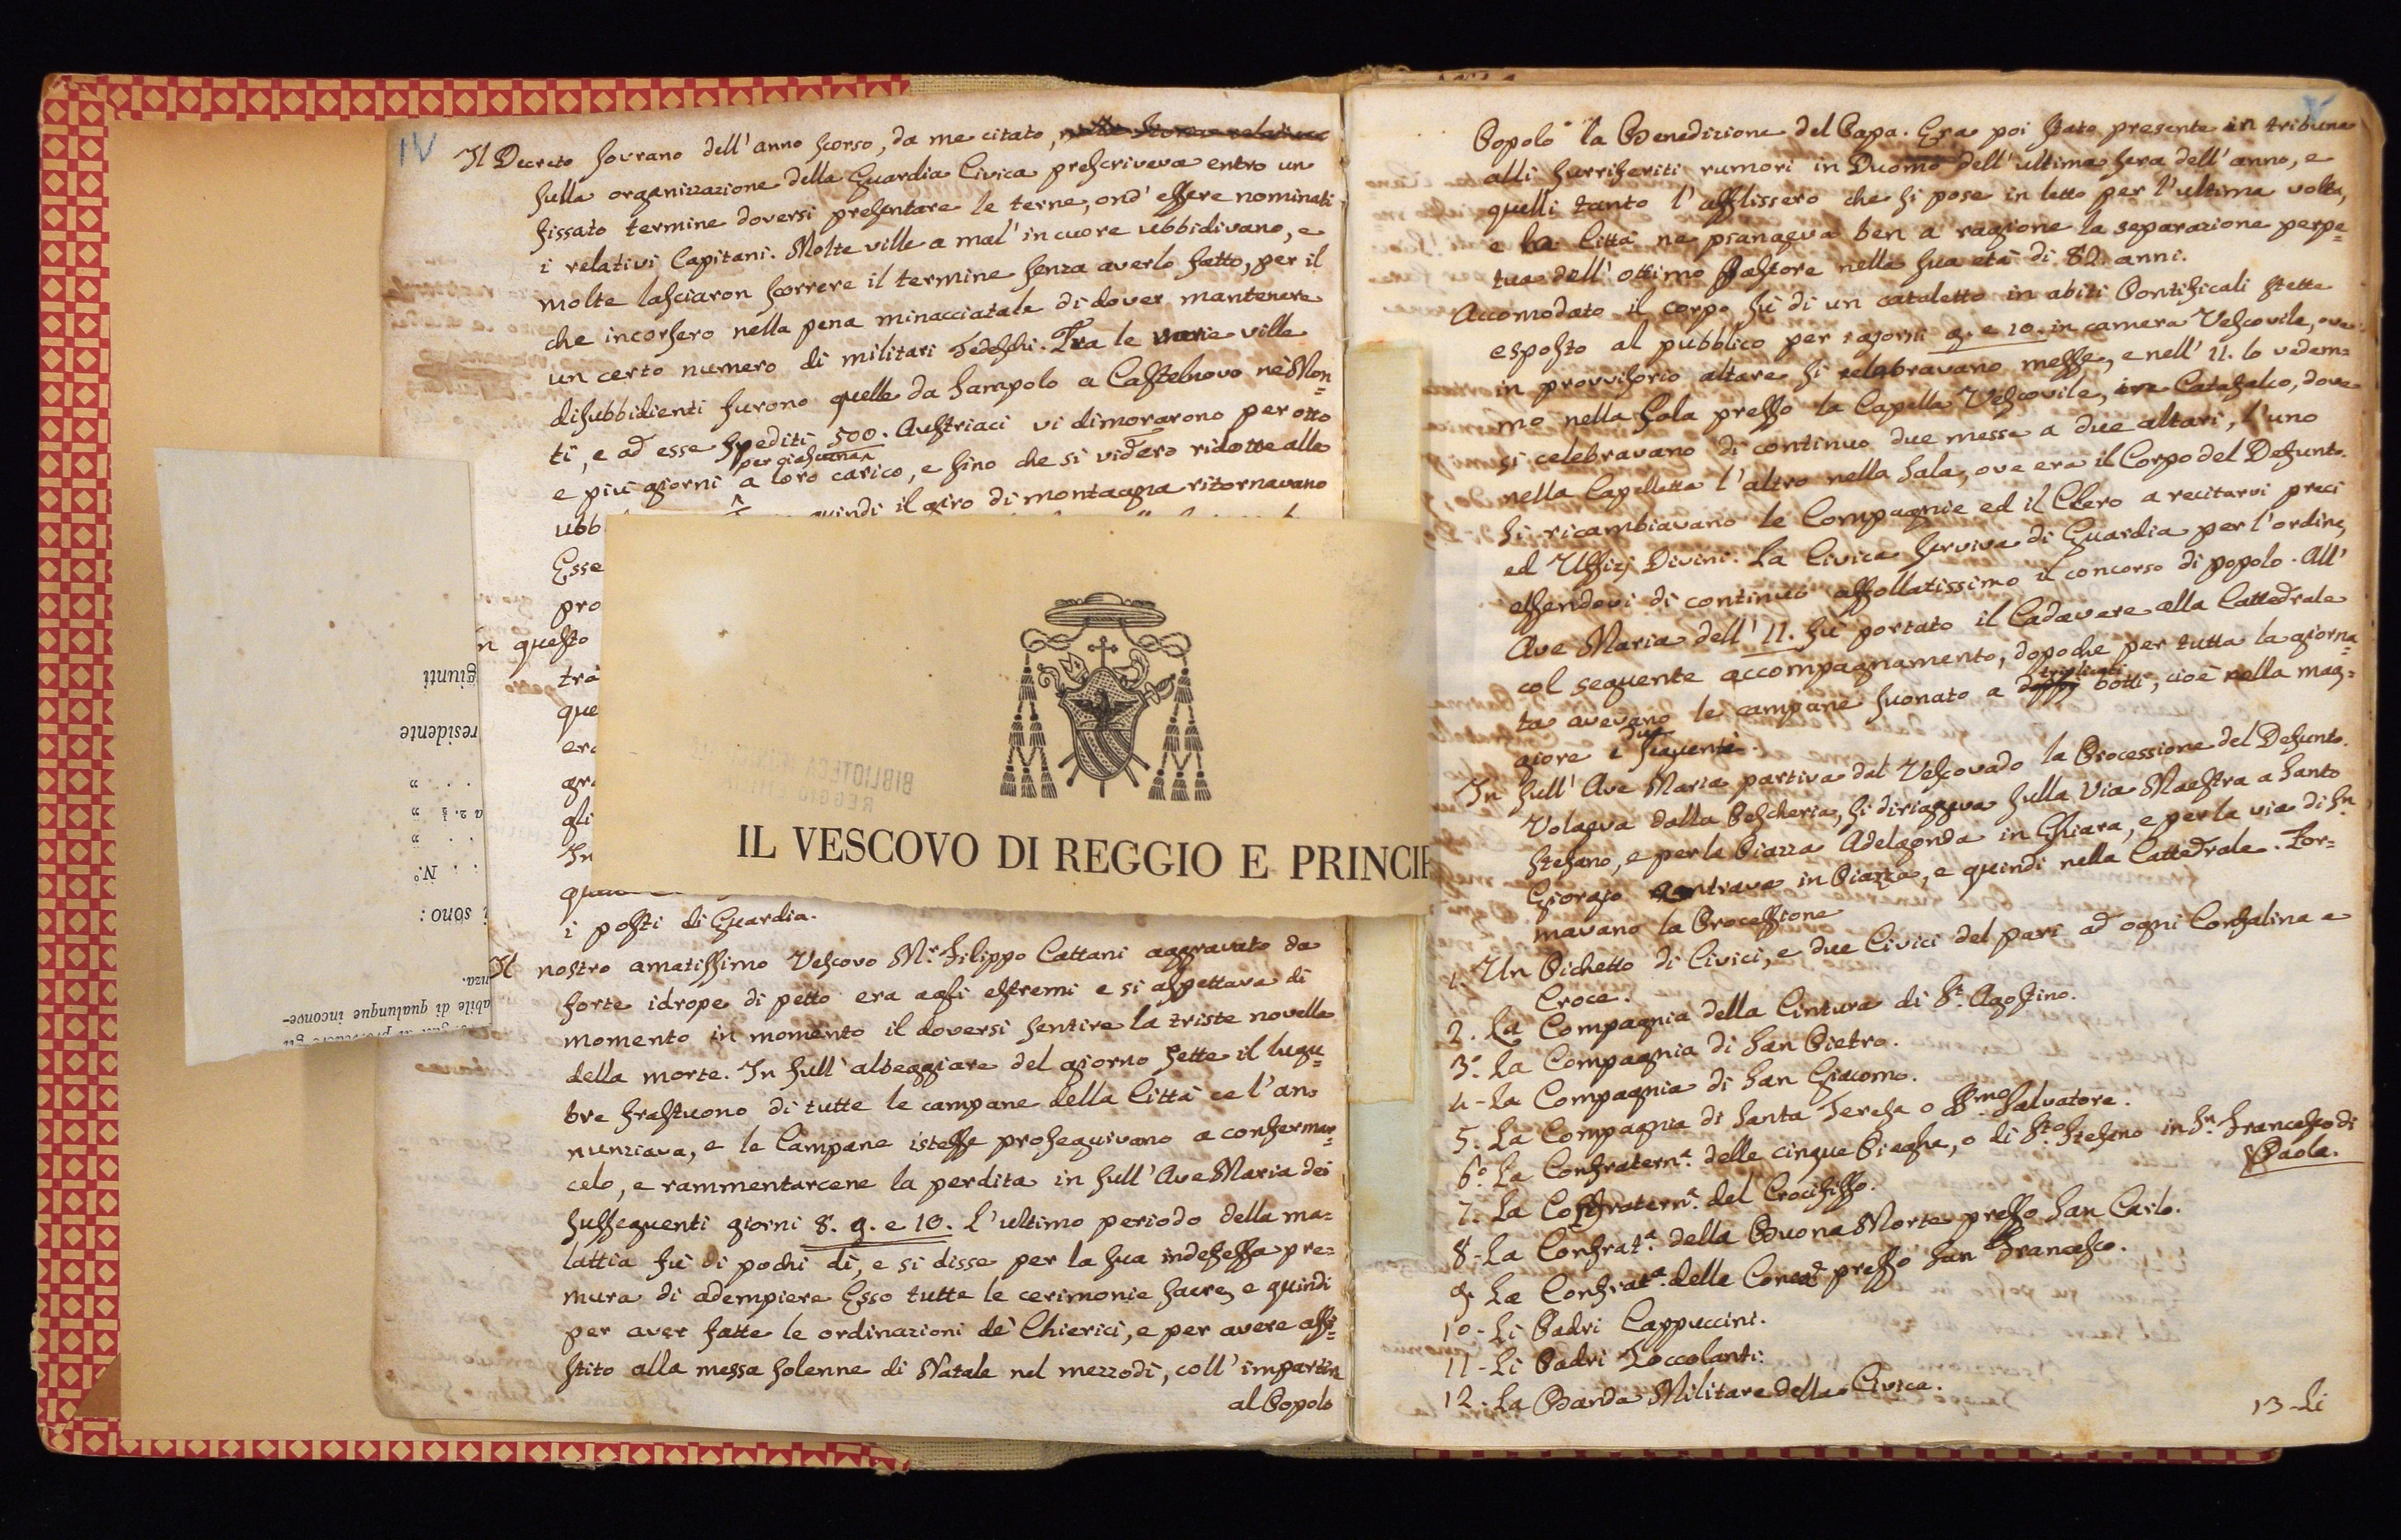 IV
Il Decreto sovrano dell'anno scorso, da me citato,
sulla organizzazione della Guardia Civica prescriveva entro un
fissato termine doversi presentare le terne, ond'essere nominati
i relativi Capitani. Molte ville a mal'in cuore ubbidivano, e
molte lasciaron scorrere il termine senza averlo fatto, per il
che incorsero nella pena minacciatale di dover mantenere
un certo numero di militari Tedeschi. Tra le varie ville
disubbidienti furono quelle da Sampolo a Castelnovo nè Mon=
ti, e ad esse spediti 500. Austriaci vi dimorarono per otto
e più giorni a loro carico, e fino che si videro ridotte alle
per giascuna
ubb quindi il giro di montagna ritornavano
Esse
pro
n questo
tra
que
era
gra
gli
In
i posti di Guardia.
Il nostro amatissimo Vescovo Mr. Filippo Cattani aggravato da
forte idrope di petto era agli estremi e si aspettava di
momento in momento il doversi sentire la triste novella
della morte. In sull'albeggiare del giorno sette il lugu=
bre frastuono di tutte le campane della Città ce l'an=
nunziava, e le Campane istesse proseguivano a confermar=
celo, e rammentarcene la perdita in sull'Ave Maria dei
susseguenti giorni 8. 9. e 10. L'ultimo periodo della ma=
lattia fù di pochi dì, e si disse per la sua indefessa pre=
mura di adempiere Esso tutte le cerimonie sacre, e quindi
per aver fatte le ordinazioni de' Chierici, e per avere assi=
stito alla messa solenne di Natale nel mezzodì, coll'impartire
al Popolo
giunti
residente
a 2.
N.°
i sono:
nza.
abile di qualunque inconve-
BIBLIOTECA MUNICIPALE
REGGIO EMILIA
IL VESCOVO DI REGGIO E PRINCI
V
Popolo la Benedizione del Papa. Era poi stato presente in tribuna
alli surriferiti rumori in Duomo dell'ultima sera dell'anno, e
quelli tanto l'afflissero che si pose in letto per l'ultima volta,
e la Città ne piangeva ben a ragione la separazione perpe=
tua dell'ottimo Pastore nella sua età di 82. anni.
Accomodato il corpo sù di un cataletto in abiti Pontificali stette
esposto al pubblico per i giorni 9. e 10. in camera Vescovile, ove
in provvisorio altare si celebravano messe, e nell'11. lo vedem=
mo nella sala presso la Capella Vescovile, in Catafalco, dove
si celebravano di continuo due messe a due altari, l'uno
nella Capelletta l'altro nella sala, ove era il Corpo del Defunto.
Si ricambiavano le Compagnie ed il Clero a recitarvi preci
ed Uffizj Divini. La Civica serviva di Guardia per l'ordine,
essendovi di continuo affollatissimo il concorso di popolo. All'
Ave Maria dell'11. fù portato il Cadavere alla Cattedrale
col seguente accompagnamento, dopoche per tutta la giorna=
ta avevano le campane suonato a triplicati botti, cioè nella mag=
giore e due seguenti.
In sull'Ave Maria partiva dal Vescovado la Processione del Defunto.
Volgeva dalla Pescheria, si diriggeva sulla Via Maestra a Santo
Stefano, e per la Piazza Adelagonda in Ghiara, e per la via di Sn.
Giorgio entrava in Piazza, e quindi nella Cattedrale. For=
mavano la Processione
1. Un Pichetto di Civici, e due Civici del pari ad ogni Confalina e
Croce.
2. La Compagnia della Cintura di St. Agostino.
3.° La Compagnia di San Pietro.
4 - La Compagnia di San Giacomo.
5. La Compagnia di Santa Teresa o SSmo. Salvatore.
6.° La Confratern.a delle cinque Piaghe, o di Sto. Stefano in Sn. Francesco di
Paola.
7. La Confratern.a del Crocifisso.
8. La Confrat.a della Buona Morte presso San Carlo.
9. La Confrat.a della Concez.e presso San Francesco.
10 - Li Padri Cappuccini.
11 - Li Padri Zoccolanti.
12. La Banda Militare della Civica.
13 - Li